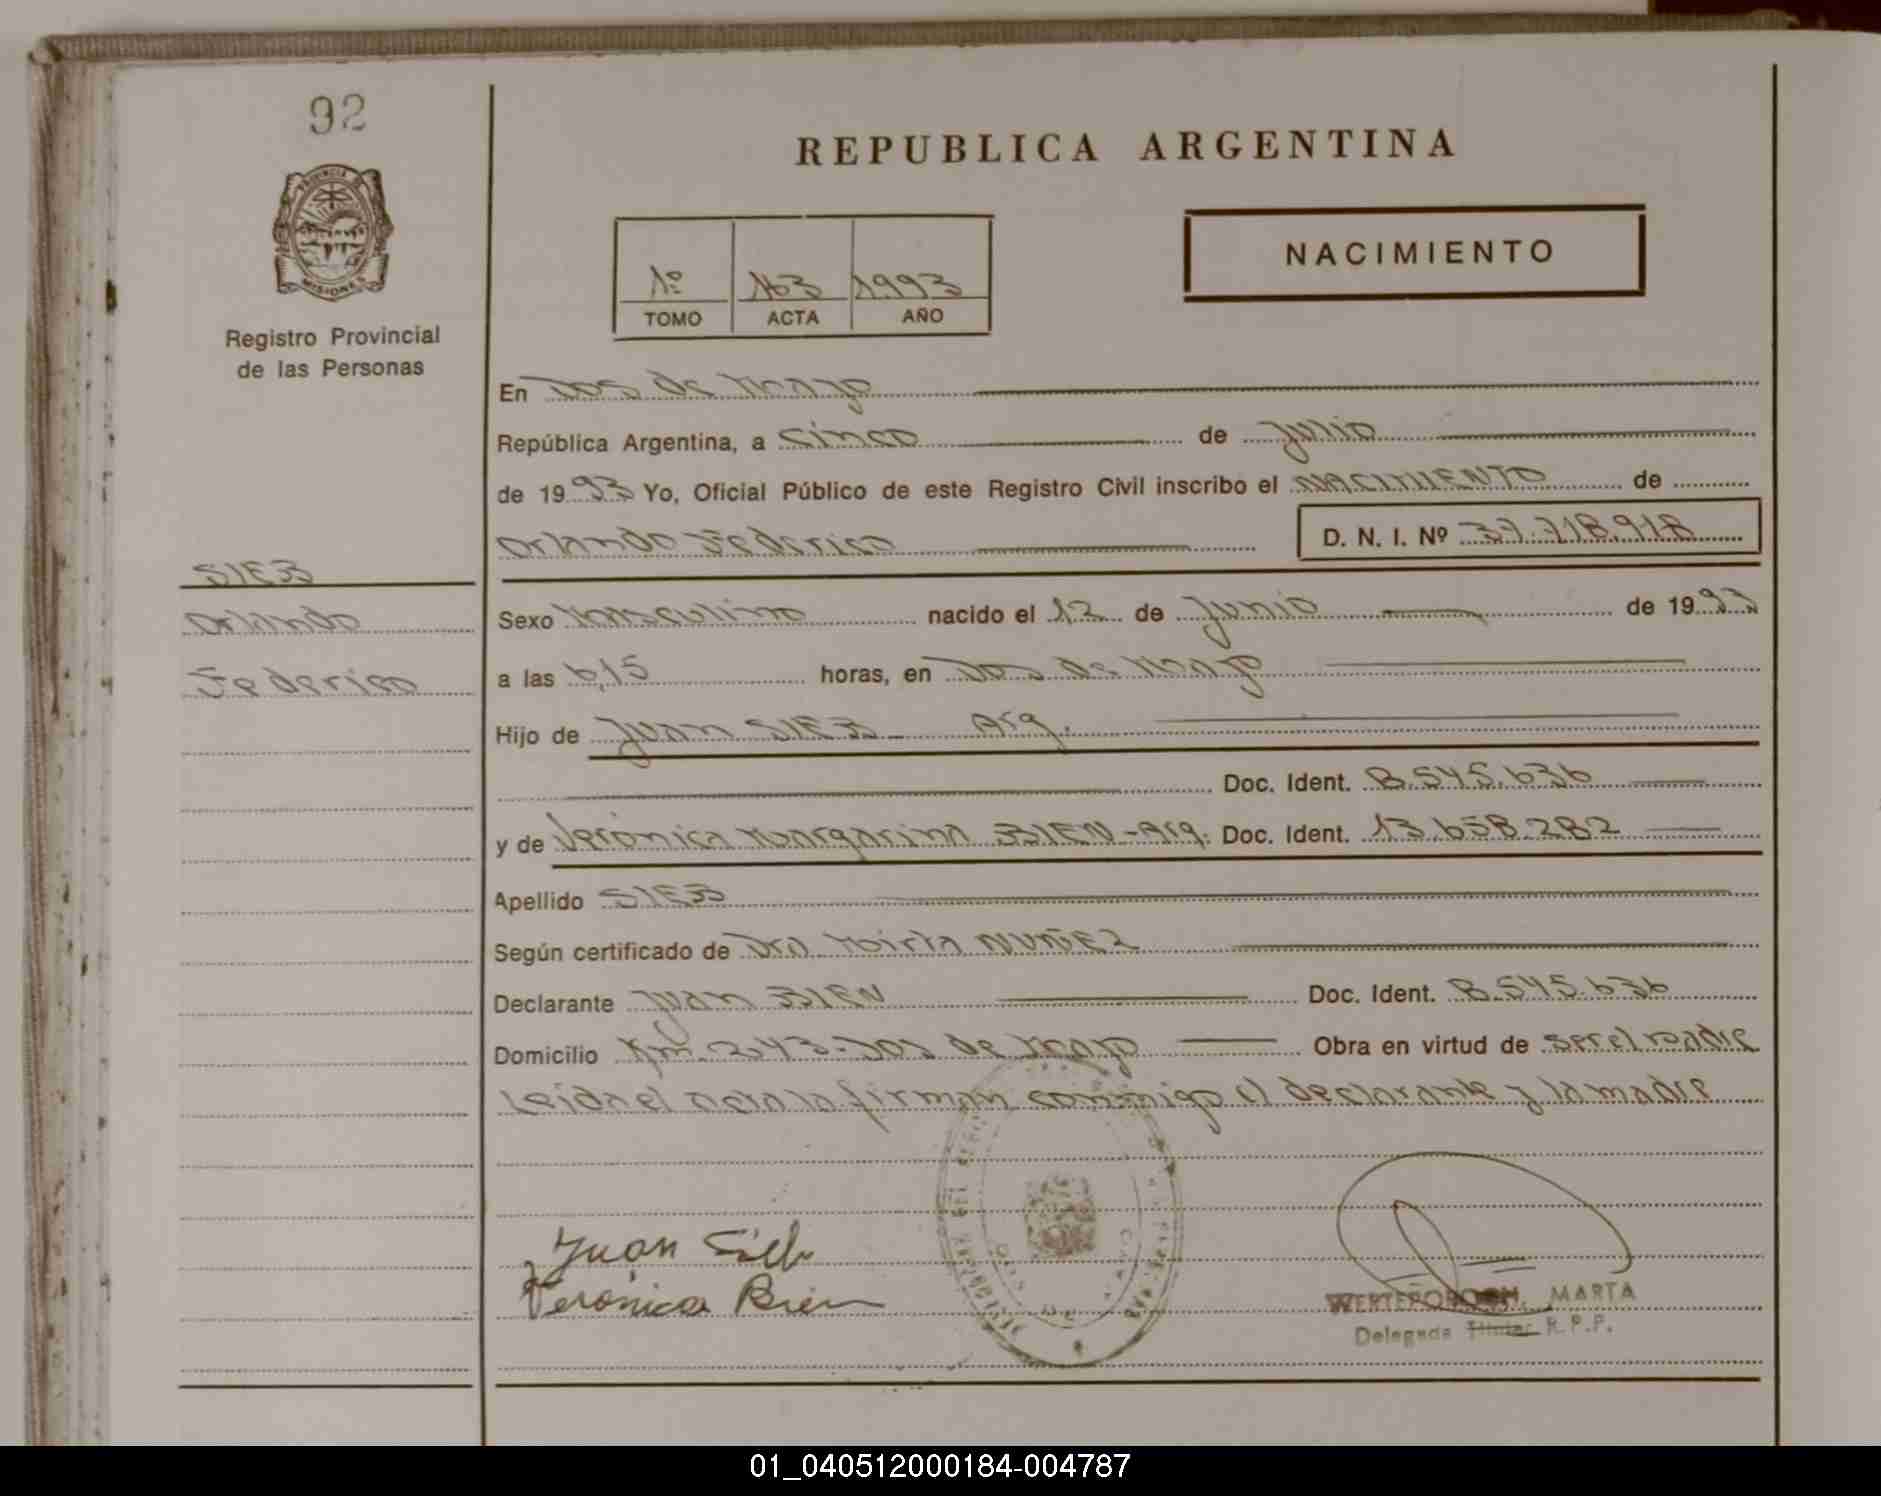 92
PROVINCIA DE
MISIONES
Registro Provincial
de las Personas
SIEB
Orlando
Federico
REPUBLICA ARGENTINA
NACIMIENTO
1º 163 1993
TOMO ACTA AÑO
En Dos de Mayo
República Argentina, a cinco de Julio
de 1993 Yo, Oficial Público de este Registro Civil inscribo el NACIMIENTO de
Orlando Federico D. N. I. Nº 37.718.918
Sexo Masculino nacido el 12 de Junio de 1993
a las 6,15 horas, en Dos de Mayo
Hijo de Juan SIEB - Arg.
Doc. Ident. 8.545.636
y de Verónica Margarina BIEN - Arg. Doc. Ident. 13.658.282
Apellido SIEB
Según certificado de Dra Mirta NUÑEZ
Declarante Juan BIEN Doc. Ident. 8.545.636
Domicilio Km. 243-Dos de Mayo Obra en virtud de ser el padre
Leida el acta la firman conmigo el declarante y la madre
Juan Sieb
Verónica Bien
MARTA
Delegada Titular R.P.P.
01_040512000184-004787